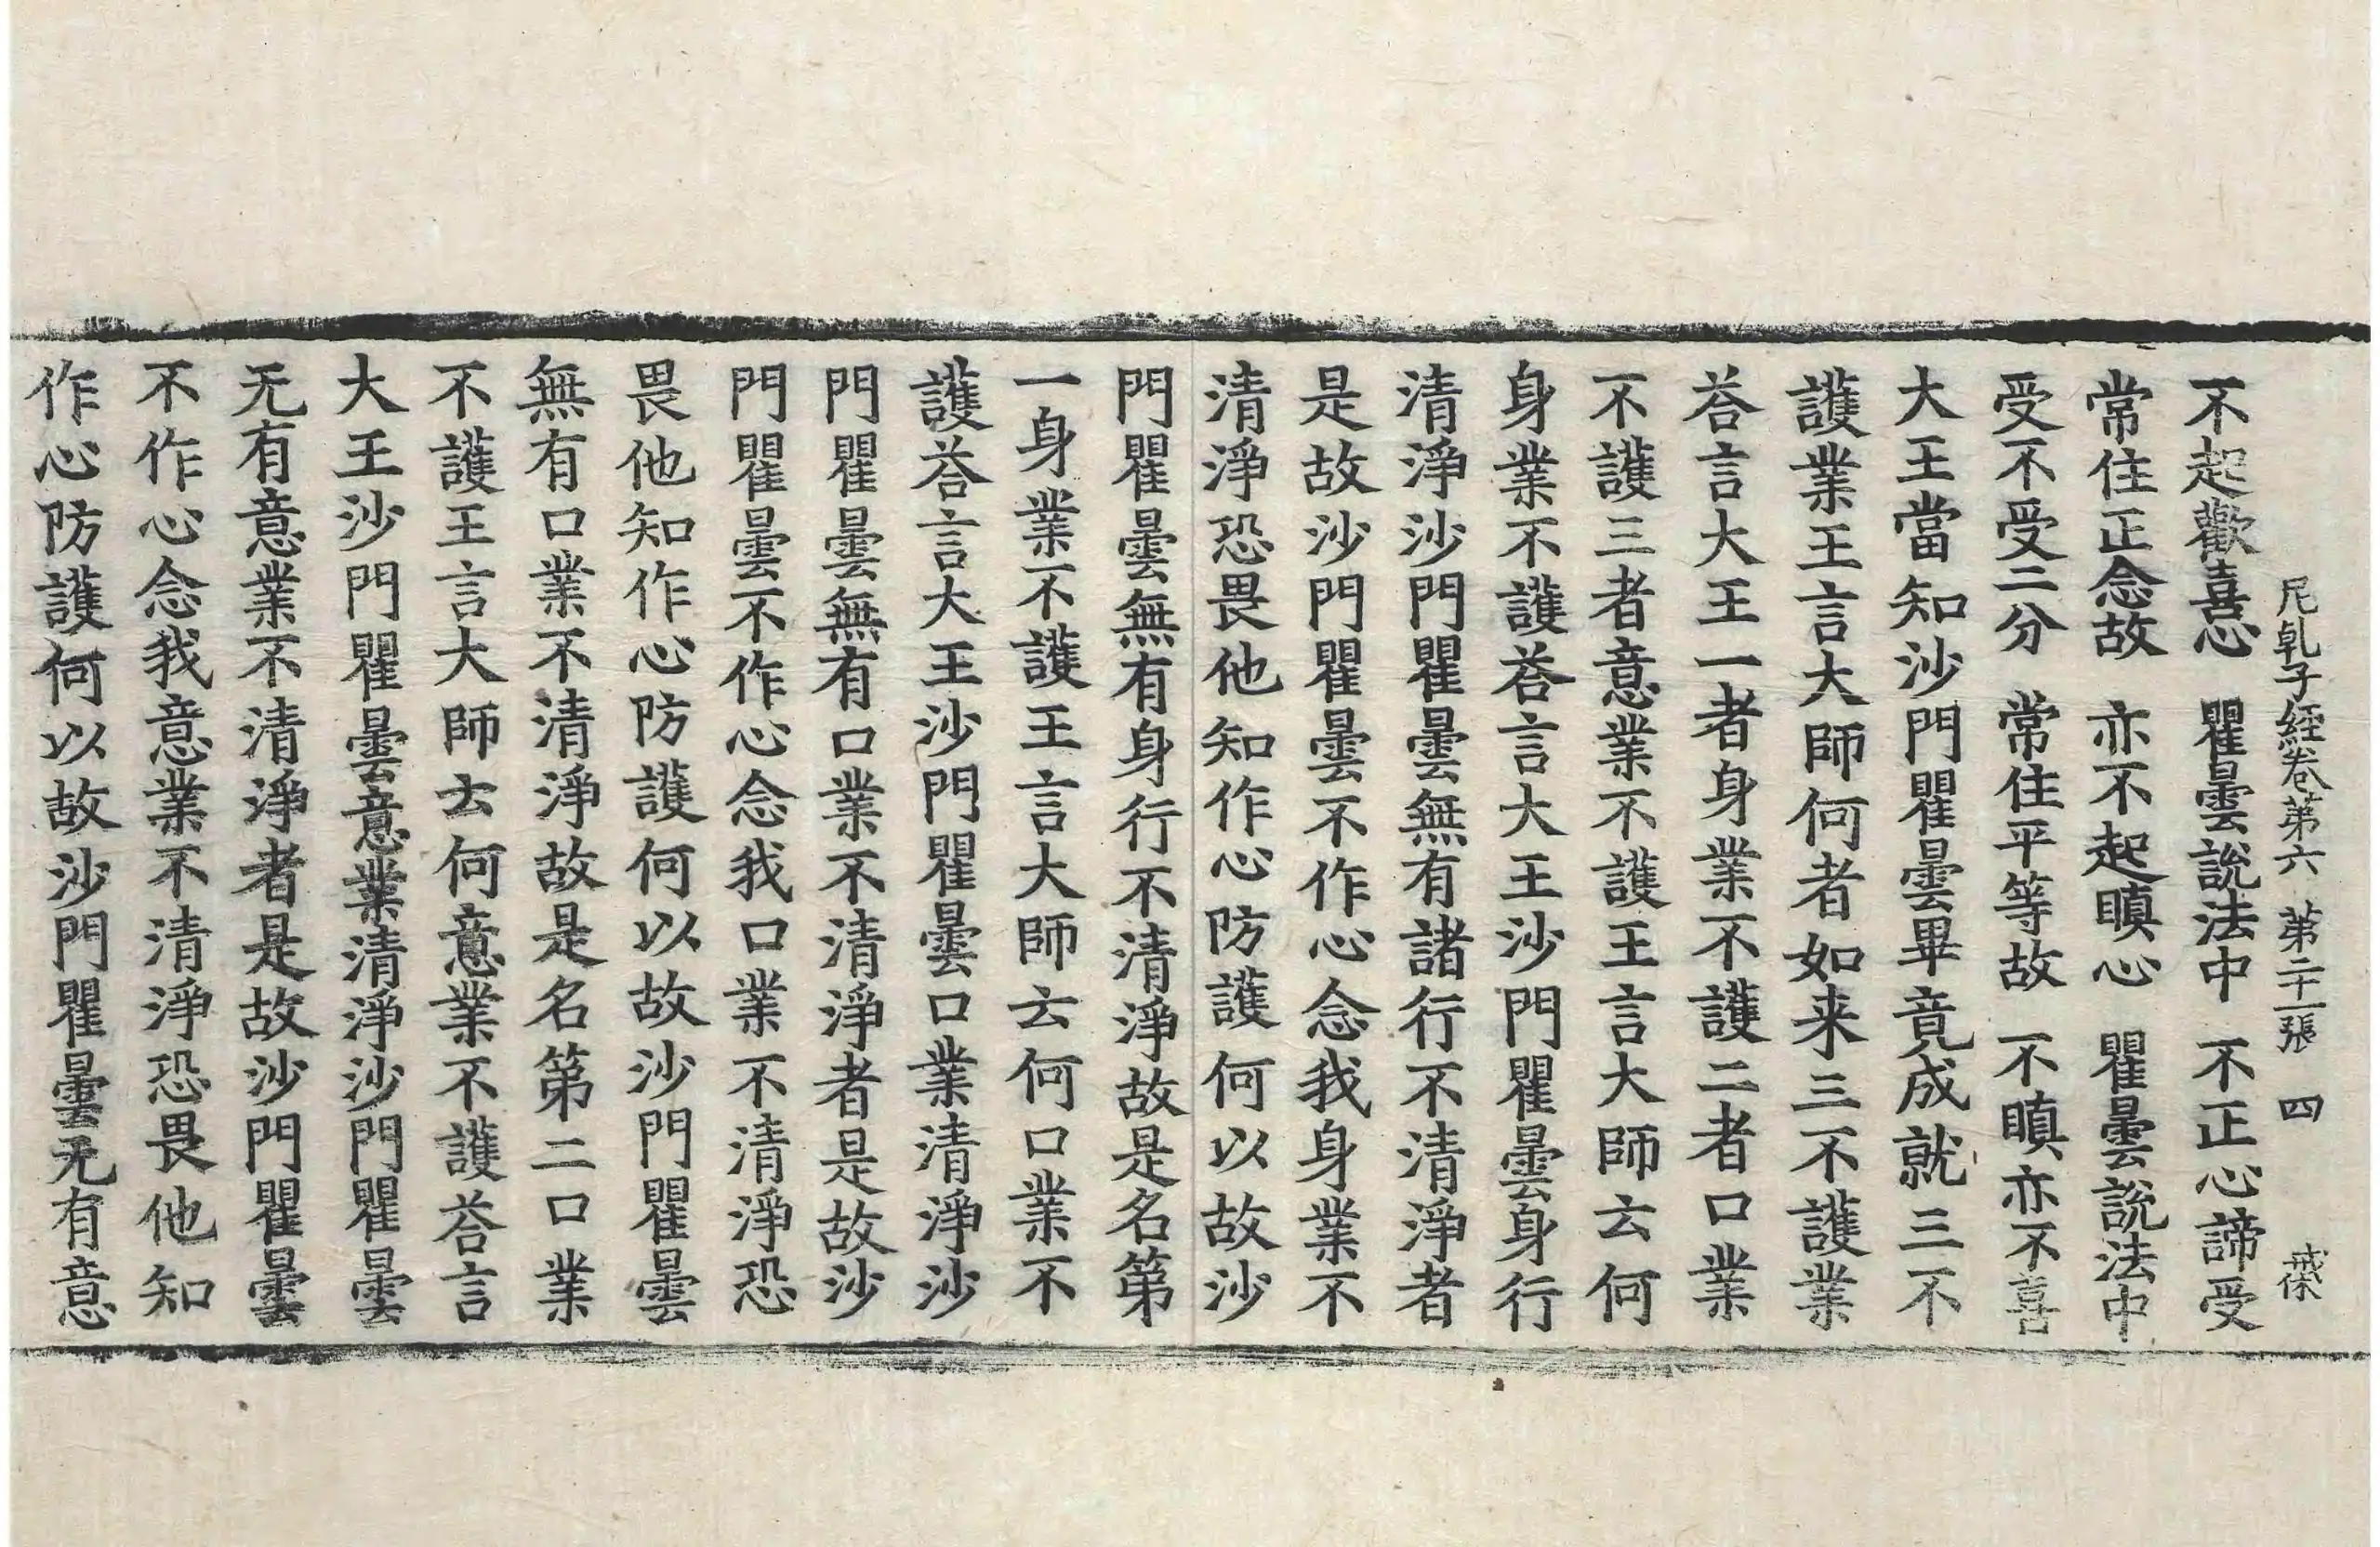 尼乹子経卷第六　第二十一張　四
不起歡喜心　瞿曇說法中　不正心諦受
常住正念故　亦不起瞋心　瞿曇說法中
受不受二分　常住平等故　不瞋亦不喜
大王當知沙門瞿曇畢竟成就三不
護業王言大師何者如来三不護業
荅言大王一者身業不護二者口業
不護三者意業不護王言大師云何
身業不護荅言大王沙門瞿曇身行
清淨沙門瞿曇無有諸行不清淨者
是故沙門瞿曇不作心念我身業不
清淨恐畏他知作心防護何以故沙
門瞿曇無有身行不清淨故是名第
一身業不護王言大師云何口業不
護荅言大王沙門瞿曇口業清淨沙
門瞿曇無有口業不清淨者是故沙
門瞿曇不作心念我口業不清淨恐
畏他知作心防護何以故沙門瞿曇
無有口業不清淨故是名第二口業
不護王言大師云何意業不護荅言
大王沙門瞿曇意業清淨沙門瞿曇
无有意業不清淨者是故沙門瞿曇
不作心念我意業不清淨恐畏他知
作心防護何以故沙門瞿曇无有意